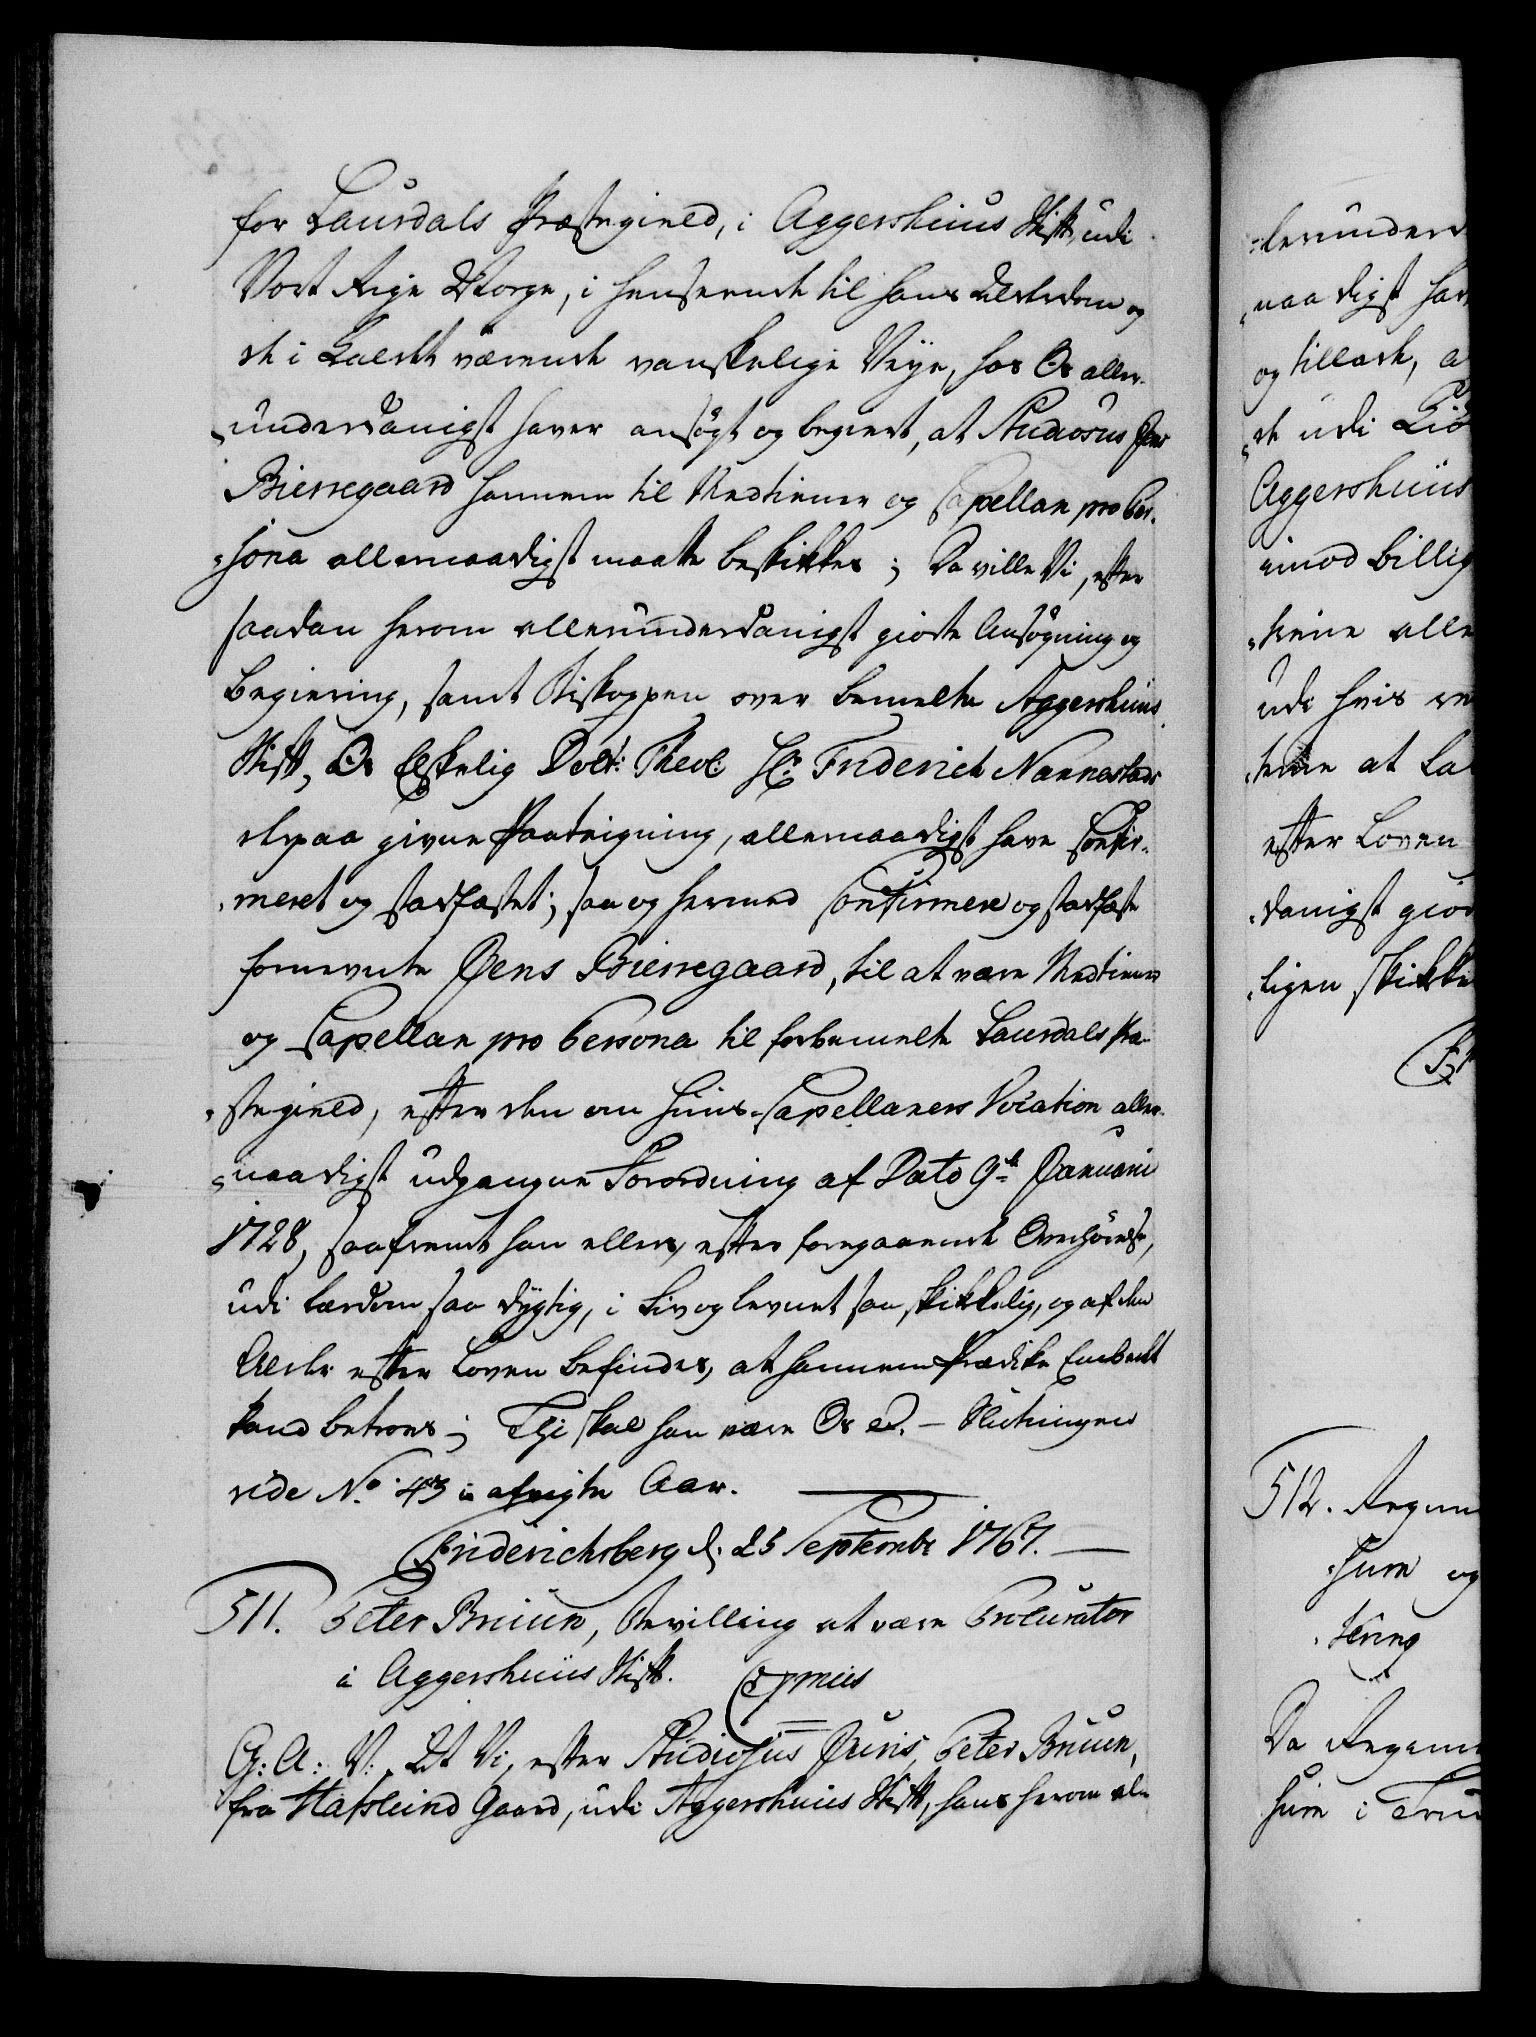 for Laurdals Præstegield, i Aggershuus Stift, udi
Vort Rige Norge, i henseende til hans Alderdom og
de i Kaldet værende vanskelige Veye, hos Os aller-
underdanigst haver ansøgt og begiert, at Studiosus Jens
Bierregaard hannem til Medtiener og Capellan pro Per-
sona allernaadigst maatte beskikkes; Da ville Vi, efter
saadan herom allerunderdanigst giorte Ansøgning og
Begiering, samt Biskoppen over bemelte Aggershuus
Stift, Os Elskelig Doct: Theol: Hr. Friderich Nannestads
derpaa givne Paategning, allernaadigst have Confir-
meret og stadfæstet; saa og hermed Confirmere og stadfæste
fornevnte Jens Bierregaard, til at være Medtiener
og Capellan pro Persona til forbemelte Laurdals Præ-
stegield, efter den om Huus-Capellaners Vocation aller-
naadigst udgangne Forordning af Dato 9de Januarii
1728, saafremt han ellers, efter foregaaende Overhørelse,
udi Lærdom saa dygtig, i Liv og levnet saa skikkelig, og af den
Alder efter Loven befindes, at hannem Prædike Embedet
kand betroes; Thi skal han være Os &. - Slutningen
vide No. 43 i afvigte Aar.
Friderichsberg d. 25 Septembr 1767.
511. Peter Bruun, Bevilling at være Procurator
i Aggershuus Stift. Expmus
G: A: V: At Vi, efter Studiosus Juris, Peter Bruun,
fra Hafslund Gaard, udi Aggershuus Stift, hans herom al-
lerunder
naadigst hav
og tillade, a
de udi
Aggershuus
imod billig
tiene alle
udi hvis
at La
efter Loven
danigst gior
ligen skikke
512. Regim
og
Da Regim
i